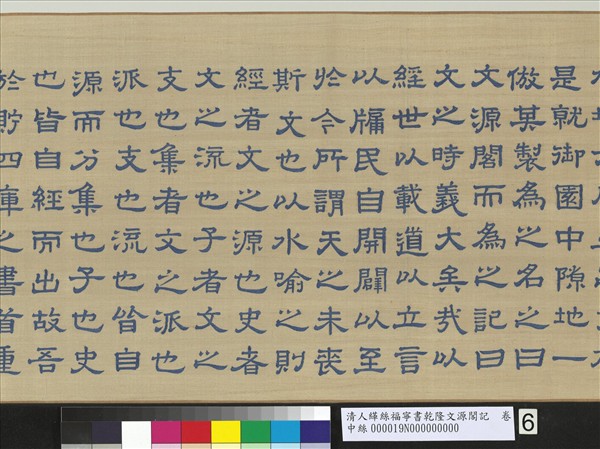 是就御園中隙地一
倣其製為之名之曰
文源閣而為之記曰
文之時義大矣哉以
經世以載道以立言
以牖民自開闢以至
於今所謂天之未喪
斯文也以水喻之則
經者文之源也史者
文之流也子者文之
支也集者文之派也
派也支也流也皆自
源而分集也子也史
也皆自經而出故吾
於貯四庫之書首重
清人緙絲福寧書乾隆文源閣記 卷
中絲000019N000000000
6